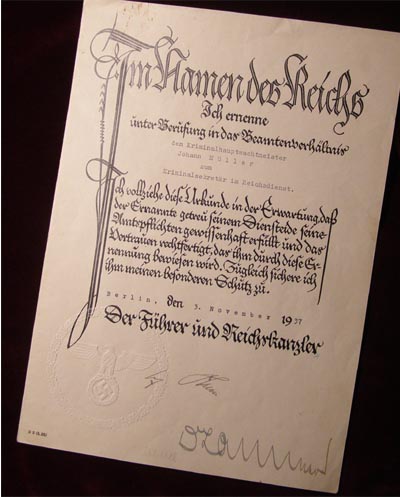 Im Namen des Reichs
Ich ernenne
unter Berufung in das Beamtenverhältnis
den Kriminalhauptwachtmeister
Johann Müller
zum
Kriminalsekretär im Reichsdienst.
Ich vollziehe diese Urkunde in der Erwartung, daß
der Ernannte getreu seinem Diensteide seine
Amtspflichten gewissenhaft erfüllt und das
Vertrauen rechtfertigt, das ihm durch diese Er-
nennung bewiesen wird. Zugleich sichere ich
ihm meinen besonderen Schutz zu.
Berlin, den 3. November 1937
Der Führer und Reichskanzler